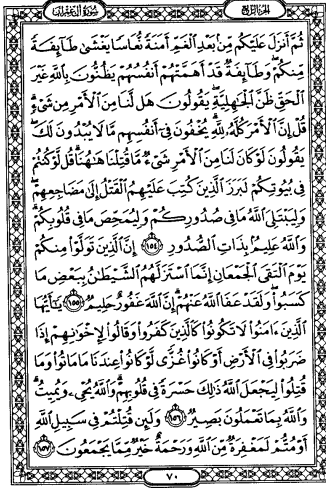 الجزء الرابع
سورة آل عمران
ثُمَّ أَنزَلَ عَلَيْكُم مِّنۢ بَعْدِ ٱلْغَمِّ أَمَنَةً نُّعَاسًا يَغْشَىٰ طَآئِفَةً
مِّنكُمْ ۖ وَطَآئِفَةٌ قَدْ أَهَمَّتْهُمْ أَنفُسُهُمْ يَظُنُّونَ بِٱللَّهِ غَيْرَ
ٱلْحَقِّ ظَنَّ ٱلْجَٰهِلِيَّةِ ۖ يَقُولُونَ هَل لَّنَا مِنَ ٱلْأَمْرِ مِن شَىْءٍ ۗ
قُلْ إِنَّ ٱلْأَمْرَ كُلَّهُۥ لِلَّهِ ۗ يُخْفُونَ فِىٓ أَنفُسِهِم مَّا لَا يُبْدُونَ لَكَ ۖ
يَقُولُونَ لَوْ كَانَ لَنَا مِنَ ٱلْأَمْرِ شَىْءٌ مَّا قُتِلْنَا هَٰهُنَا ۗ قُل لَّوْ كُنتُمْ
فِى بُيُوتِكُمْ لَبَرَزَ ٱلَّذِينَ كُتِبَ عَلَيْهِمُ ٱلْقَتْلُ إِلَىٰ مَضَاجِعِهِمْ ۖ
وَلِيَبْتَلِىَ ٱللَّهُ مَا فِى صُدُورِكُمْ وَلِيُمَحِّصَ مَا فِى قُلُوبِكُمْ ۗ
وَٱللَّهُ عَلِيمٌۢ بِذَاتِ ٱلصُّدُورِ ١٥٤ إِنَّ ٱلَّذِينَ تَوَلَّوْا۟ مِنكُمْ
يَوْمَ ٱلْتَقَى ٱلْجَمْعَانِ إِنَّمَا ٱسْتَزَلَّهُمُ ٱلشَّيْطَٰنُ بِبَعْضِ مَا
كَسَبُوا۟ ۖ وَلَقَدْ عَفَا ٱللَّهُ عَنْهُمْ ۗ إِنَّ ٱللَّهَ غَفُورٌ حَلِيمٌ ١٥٥ يَٰٓأَيُّهَا
ٱلَّذِينَ ءَامَنُوا۟ لَا تَكُونُوا۟ كَٱلَّذِينَ كَفَرُوا۟ وَقَالُوا۟ لِإِخْوَٰنِهِمْ إِذَا
ضَرَبُوا۟ فِى ٱلْأَرْضِ أَوْ كَانُوا۟ غُزًّى لَّوْ كَانُوا۟ عِندَنَا مَا مَاتُوا۟ وَمَا
قُتِلُوا۟ لِيَجْعَلَ ٱللَّهُ ذَٰلِكَ حَسْرَةً فِى قُلُوبِهِمْ ۗ وَٱللَّهُ يُحْىِۦ وَيُمِيتُ ۗ
وَٱللَّهُ بِمَا تَعْمَلُونَ بَصِيرٌ ١٥٦ وَلَئِن قُتِلْتُمْ فِى سَبِيلِ ٱللَّهِ
أَوْ مُتُّمْ لَمَغْفِرَةٌ مِّنَ ٱللَّهِ وَرَحْمَةٌ خَيْرٌ مِّمَّا يَجْمَعُونَ ١٥٧
٧٠